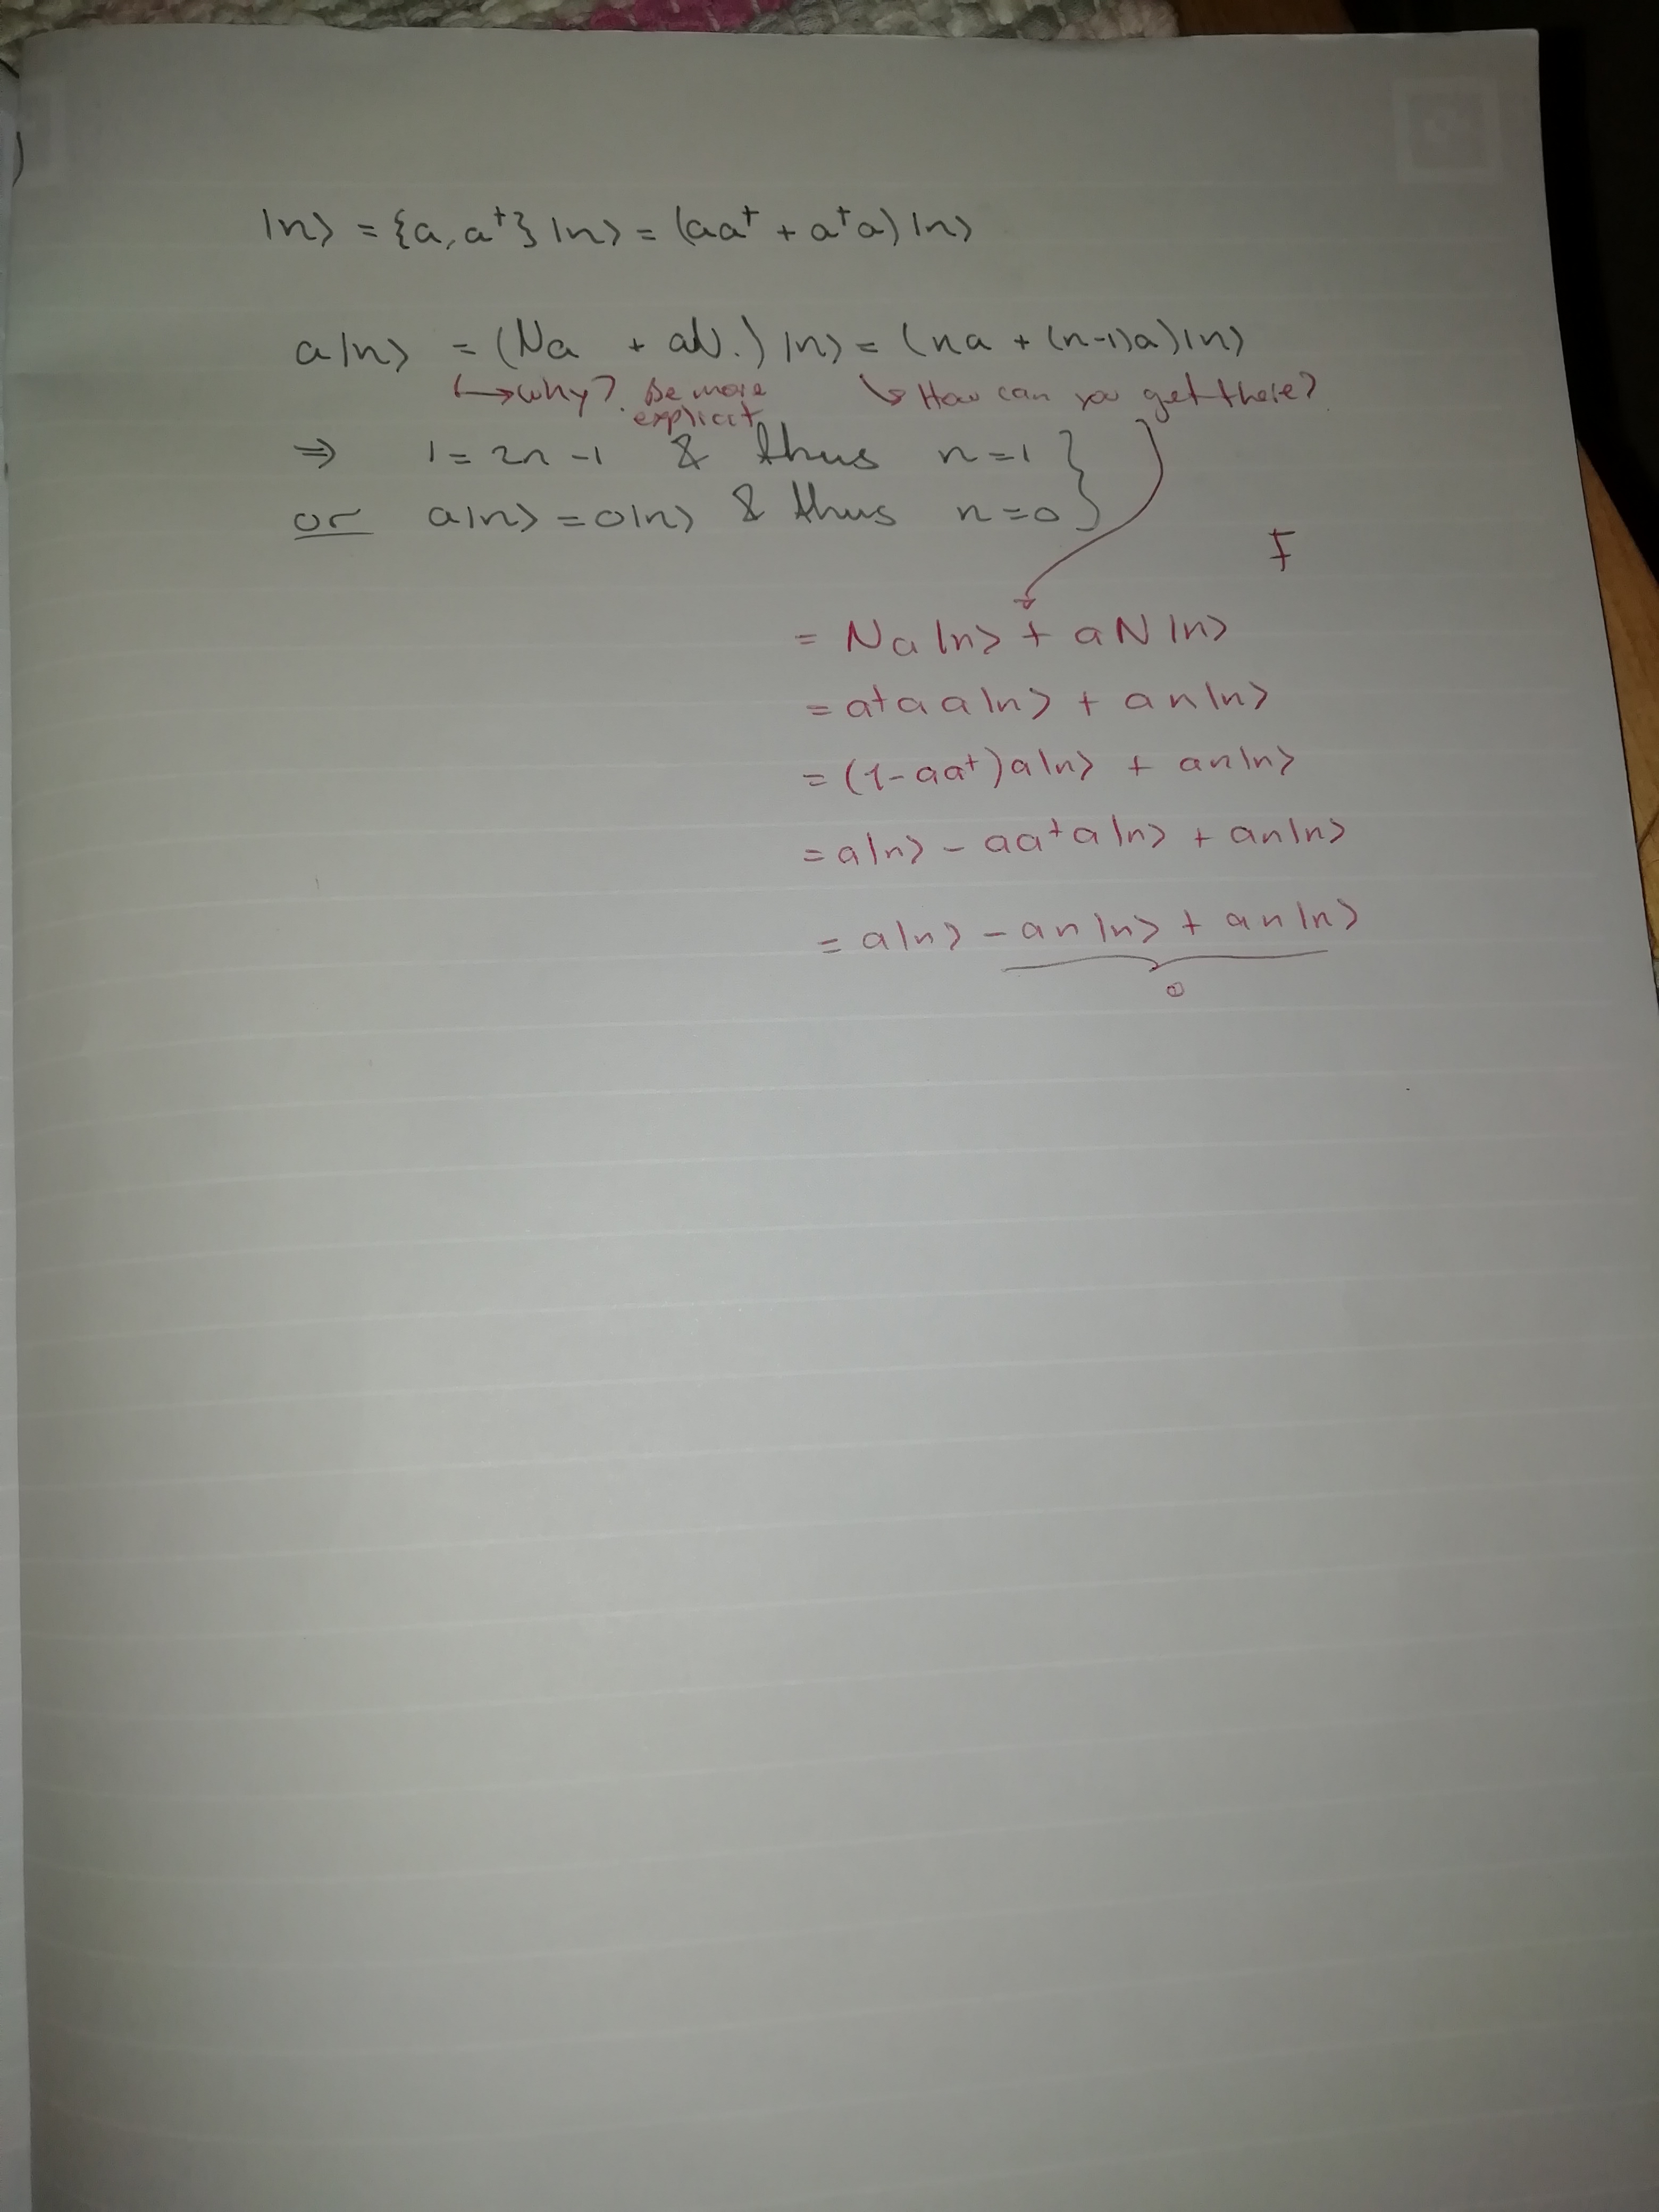 |n> = {a, a†} |n> = (aa† + a†a) |n>
a|n> = (Na + aN.) |n> = (na + (n-1)a) |n>
↳ why? Be more explicit
↘ How can you get there?
⇒ 1 = 2n - 1 & thus n = 1
or a|n> = 0|n> & thus n = 0
= Na|n> + aN|n>
= a†aa|n> + an|n>
= (1 - aa†)a|n> + an|n>
= a|n> - aa†a|n> + an|n>
= a|n> - an|n> + an|n>
0